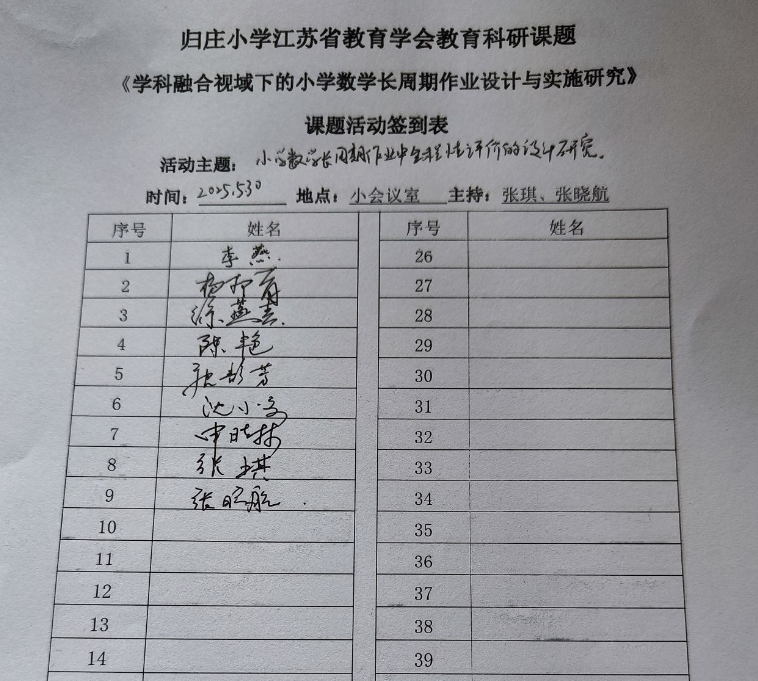 归庄小学江苏省教育学会教育科研课题
《学科融合视域下的小学数学长周期作业设计与实施研究》
课题活动签到表
活动主题：小学数学长周期作业中全程性评价的设计研究。
时间：2025.5.30 地点：小会议室 主持：张琪、张晓航
序号 姓名 序号 姓名
1 李燕 26
2 杨 27
3 徐燕 28
4 陈艳 29
5 彭芳 30
6 沈小 31
7 晓 32
8 张琪 33
9 张晓航 34
10 35
11 36
12 37
13 38
14 39